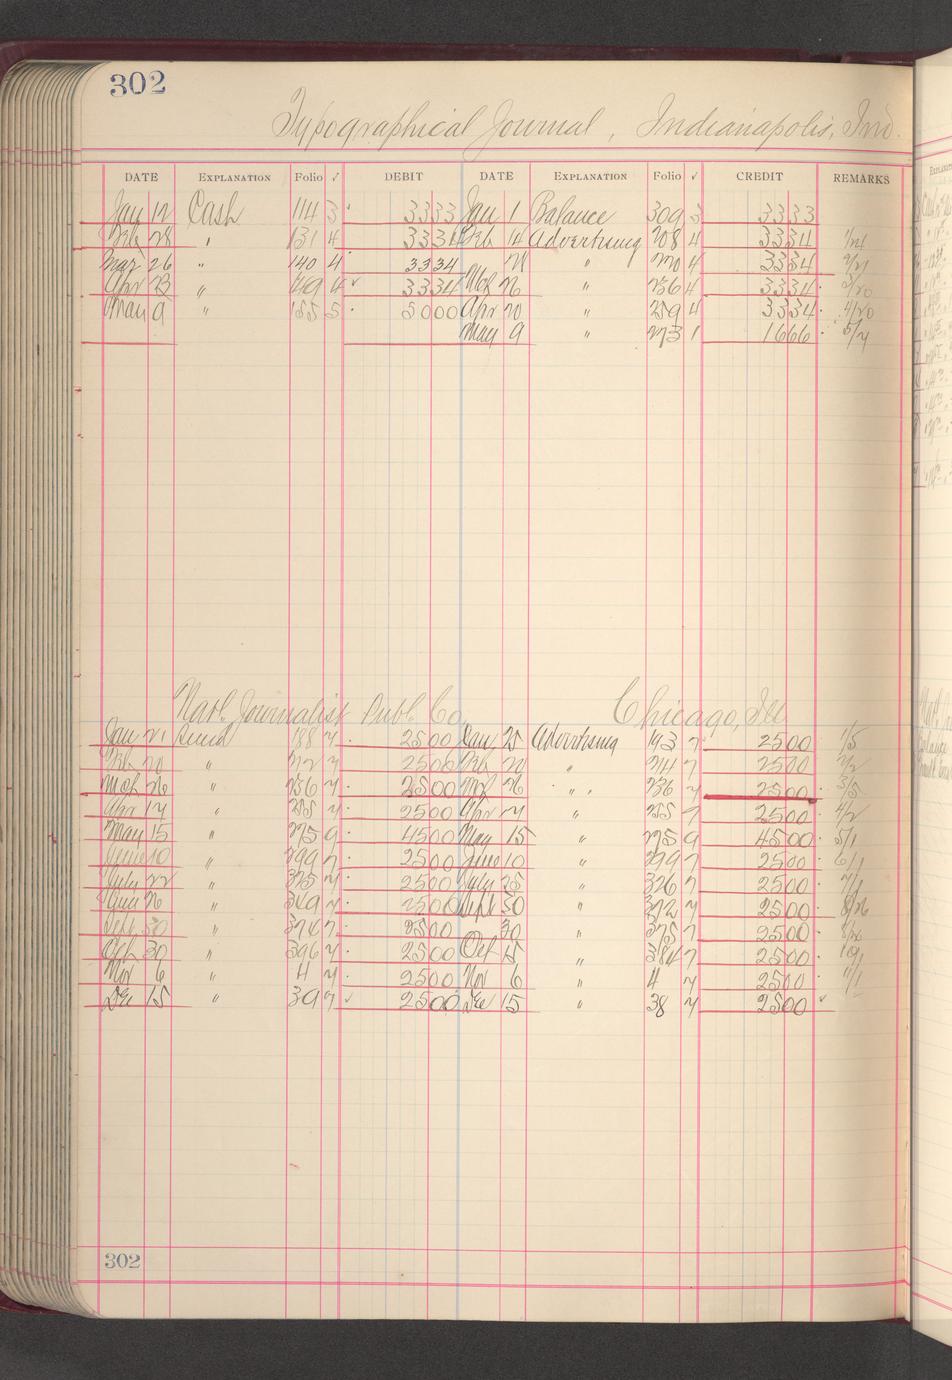 302
Typographical Journal, Indianapolis, Ind.
DATE EXPLANATION Folio ✓ DEBIT DATE EXPLANATION Folio ✓ CREDIT REMARKS
Jan 12 Cash 114 3 3333 Jan 1 Balance 309 3 3333
Feb 28 " 131 4 3334 Feb 14 Advertising 208 4 3334
Mar 26 " 140 4 3334 220 4 3334
Apr 23 " 149 4 3334 Mch 26 " 236 4 3334 3/20
May 9 " 155 5 5000 Apr 20 " 259 4 3334 4/20
May 9 " 273 1 1666 5/4
Natl. Journalist Publ. Co. Chicago, Ill
Jan 21 188 7 2500 Jan 25 Advertising 193 7 2500 1/5
Feb 20 " 2500 Feb 20 " 211 7 2500 2/2
Mch 26 " 236 7 2500 Mch 26 " 236 7 2500 3/5
Apr 17 " 255 7 2500 Apr 7 " 255 7 2500 4/2
May 15 " 275 9 4500 May 15 " 275 9 4500 5/1
June 10 " 299 7 2500 June 10 " 299 7 2500 6/1
July 22 " 325 7 2500 July 25 " 326 7 2500 7/1
Aug 26 " 349 7 2500 Sept 30 " 372 7 2500
Sept. 30 " 374 7 2500 30 " 375 7 2500
Oct 30 " 396 7 2500 Oct 15 " 384 7 2500
Nov 6 " 4 7 2500 Nov 6 " 4 7 2500
Dec 15 " 39 7 2500 Dec 15 " 38 7 2500
302